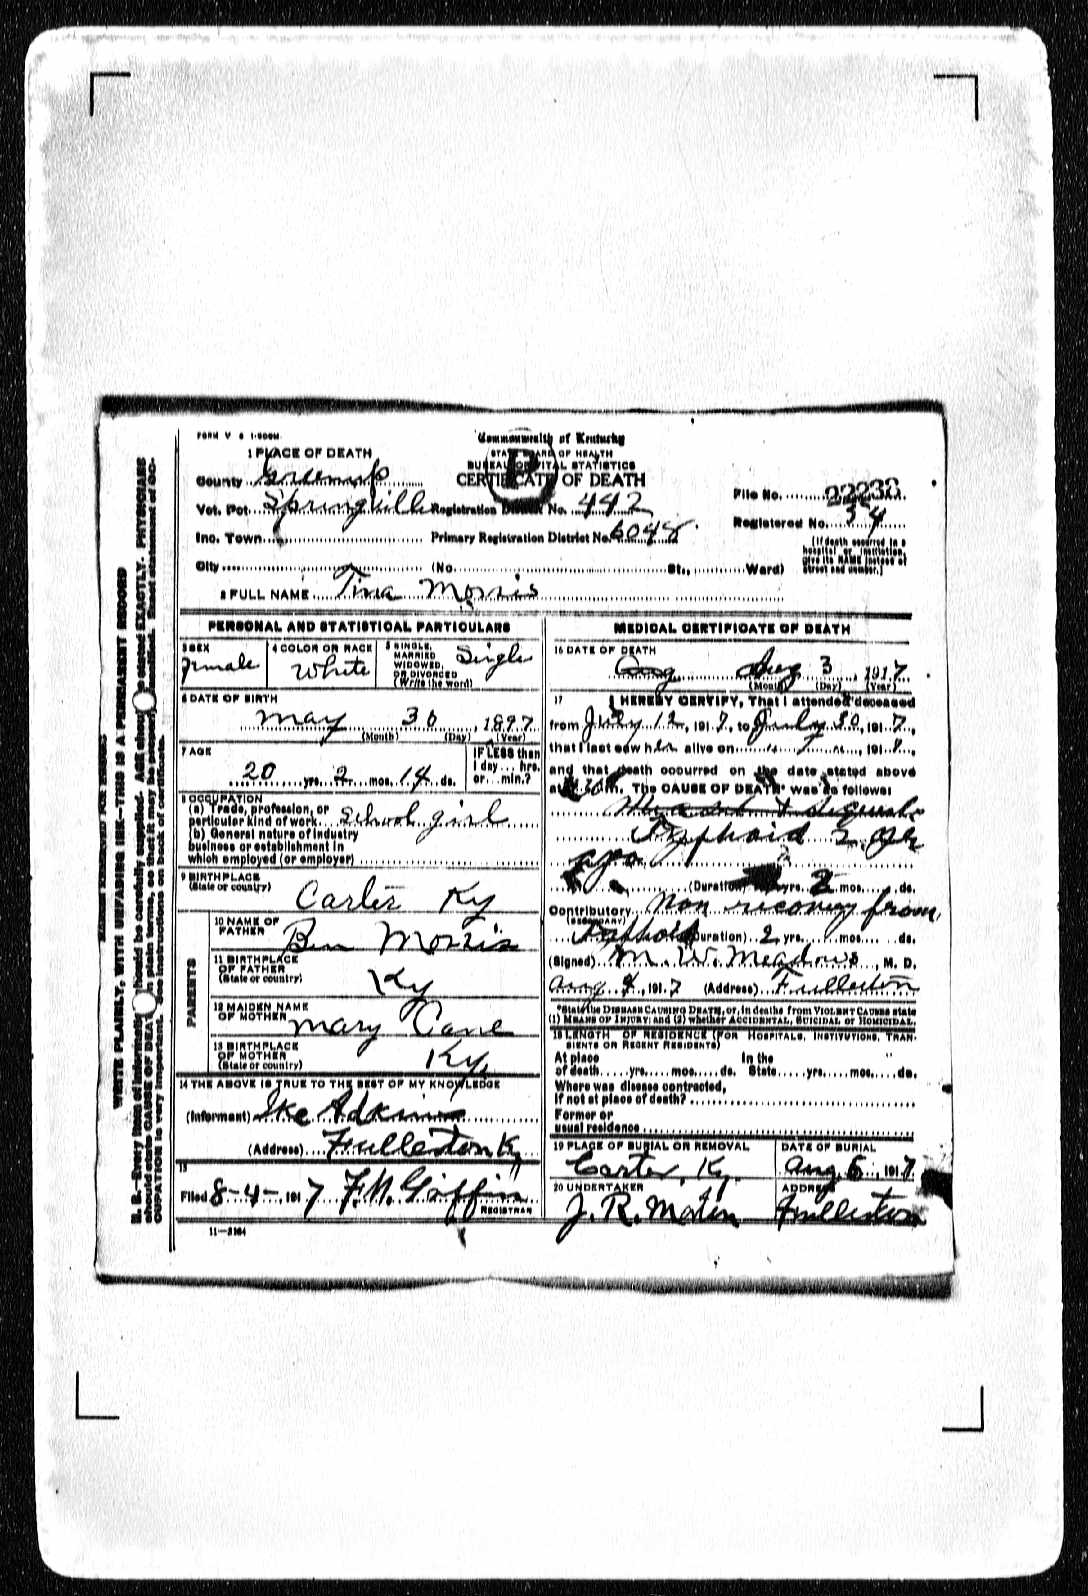 FORM V S 1-500M
Commonwealth of Kentucky
STATE BOARD OF HEALTH
BUREAU OF VITAL STATISTICS
CERTIFICATE OF DEATH
1 PLACE OF DEATH
County Greenup
Vot. Pct. Springville Registration District No. 442
File No. 22232
Registered No. 54
Inc. Town Primary Registration District No. 6048
(If death occurred in a hospital or institution, give its NAME instead of street and number.)
City (No. St., Ward)
2 FULL NAME Tina Morris
PERSONAL AND STATISTICAL PARTICULARS
3 SEX female
4 COLOR OR RACE White
5 SINGLE, MARRIED WIDOWED, OR DIVORCED (Write the word) Single
6 DATE OF BIRTH
May 30, 1897
(Month) (Day) (Year)
7 AGE
20 yrs. 2 mos. 14 ds.
IF LESS than 1 day ... hrs. or ... min.?
8 OCCUPATION
(a) Trade, profession, or particular kind of work school girl
(b) General nature of industry
business or establishment in
which employed (or employer)
9 BIRTHPLACE
(State or country) Carter Ky
PARENTS
10 NAME OF FATHER Ben Morris
11 BIRTHPLACE OF FATHER (State or country) Ky
12 MAIDEN NAME OF MOTHER Mary Cane
13 BIRTHPLACE OF MOTHER (State or country) Ky.
14 THE ABOVE IS TRUE TO THE BEST OF MY KNOWLEDGE
(Informant) Ike Adkins
(Address) Fullerton Ky
15
Filed 8-4-, 1917 F.M. Griffin
REGISTRAR
11-3184
MEDICAL CERTIFICATE OF DEATH
16 DATE OF DEATH
Aug Aug 3, 1917
(Month) (Day) (Year)
17 I HEREBY CERTIFY, That I attended deceased
from July 12, 1917, to July 30, 1917,
that I last saw her alive on , 191
and that death occurred on the date stated above
at m. The CAUSE OF DEATH* was as follows:
Typhoid 2
ago
(Duration) yrs. 2 mos. ds.
Contributory Non recovery from
(SECONDARY)
Typhoid (Duration) 2 yrs. mos. ds.
(Signed) M. W. Meadows, M. D.
Aug 4, 1917 (Address) Fullerton
*State the DISEASE CAUSING DEATH, or, in deaths from VIOLENT CAUSES state
(1) MEANS OF INJURY; and (2) whether ACCIDENTAL, SUICIDAL or HOMICIDAL.
18 LENGTH OF RESIDENCE (FOR HOSPITALS, INSTITUTIONS, TRANSIENTS OR RECENT RESIDENTS)
At place In the
of death yrs. mos. ds. State yrs. mos. ds.
Where was disease contracted,
if not at place of death?
Former or
usual residence
19 PLACE OF BURIAL OR REMOVAL DATE OF BURIAL
Carter, Ky. Aug 5, 1917
20 UNDERTAKER ADDRESS
Fullerton
WRITE PLAINLY, WITH UNFADING INK—THIS IS A PERMANENT RECORD